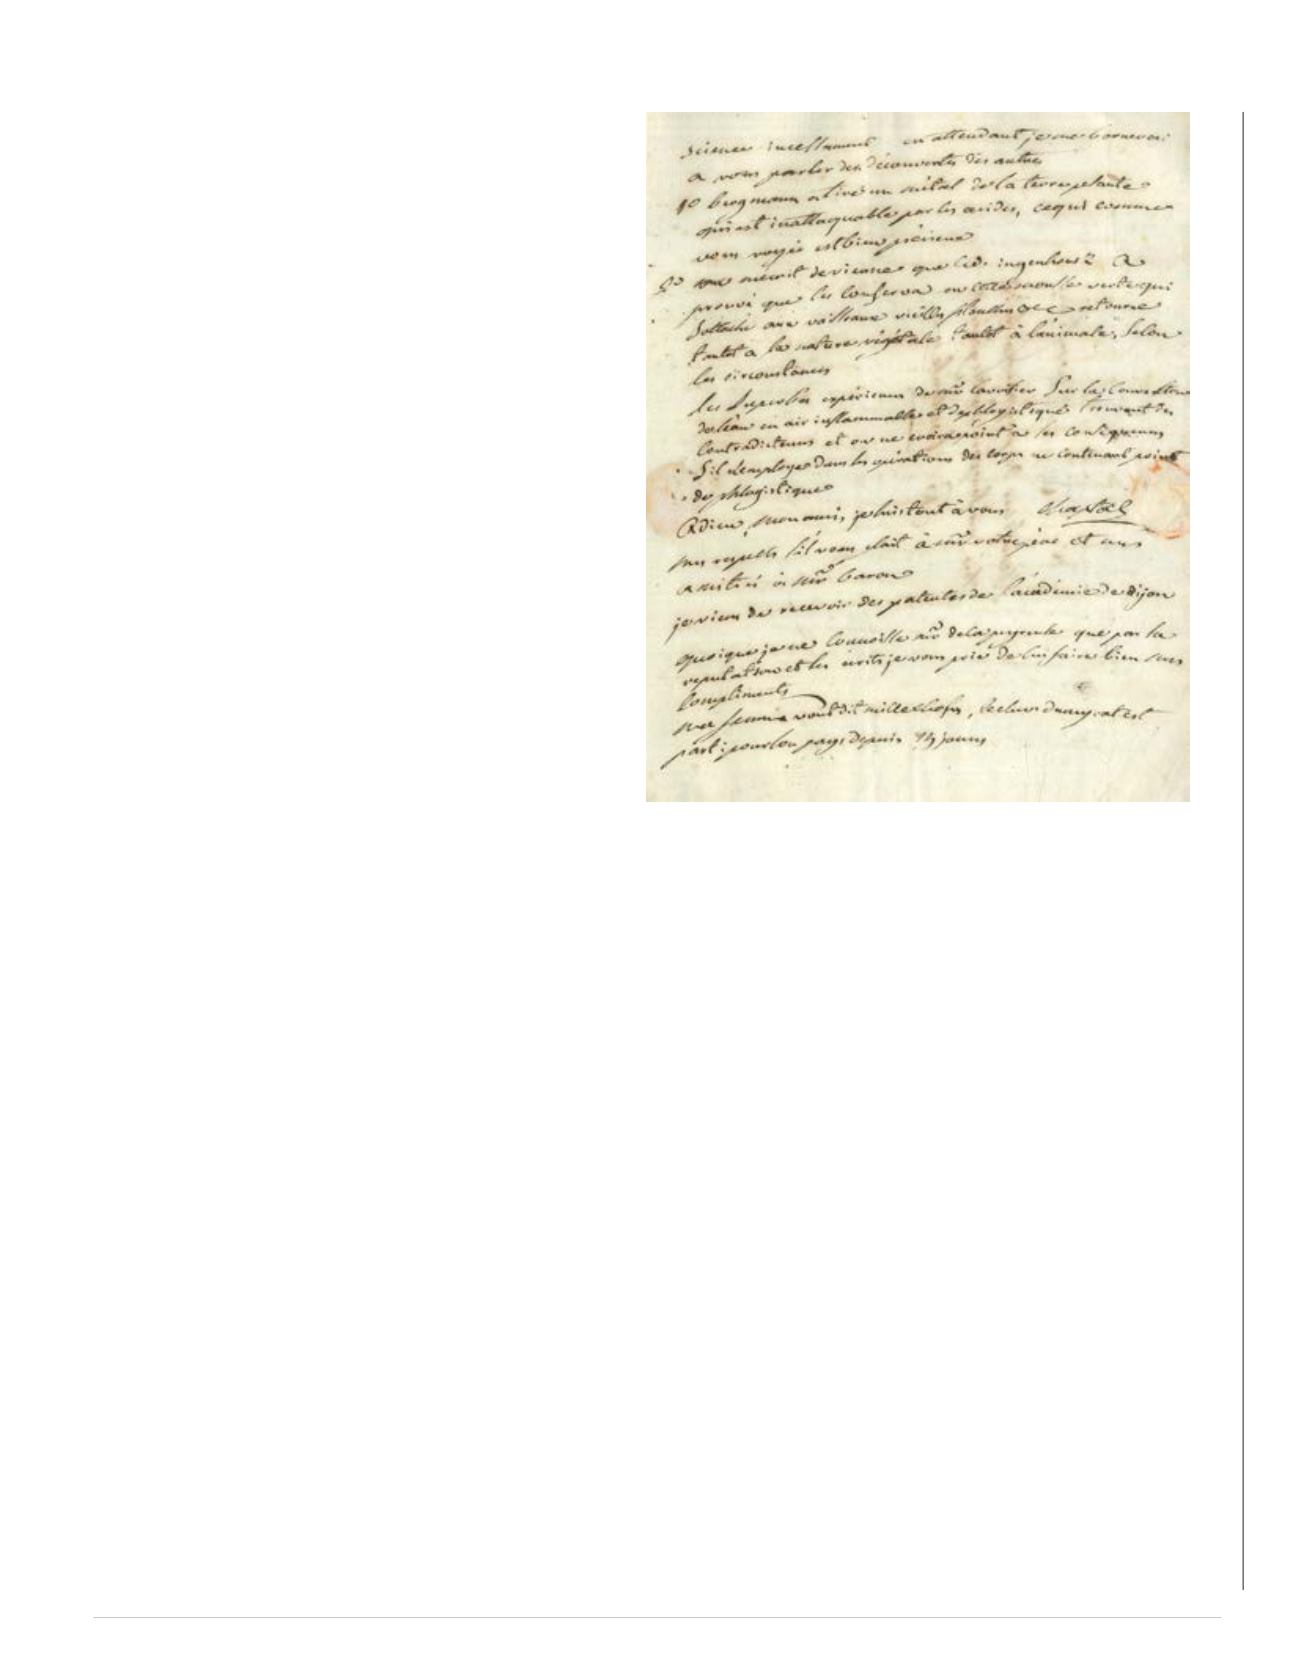 science incessament en attendant je me bornerai
a vous parler des découvertes des autres
1º bergmann a tiré un métal de la terre pesante
qui est inattaquable par les acides, ce qui comme
vous voyés est bien précieux
2º on m'écrit de vienne que le d. ingenhousz a
prouvé que les conferva ou cette mousse verte qui
s'attache aux vaisseaux vieilles planches &c retourne
tantot a la nature végétale tantot à l'animale, selon
les circonstances
les superbes expériences de mr lavoisier sur la conversion
de l'eau en air inflammable et dephlogistiqué trouvent des
contradicteurs et on ne croira point a ses conséquences
s'il n'employe dans les opérations des corps ne contenant point
de phlogistique
Adieu, mon ami, je suis tout à vous chaptal
mes respects s'il vous plait à mr votre père et mes
amitiés à mr baron
je viens de recevoir des patentes de l'académie de dijon
quoique je ne connoisse mr de la peyrouse que par sa
reputation et ses écrits je vous prie de lui faire bien mes
compliments
ma femme vous dit mille choses, est
parti pour son pays depuis 15 jours